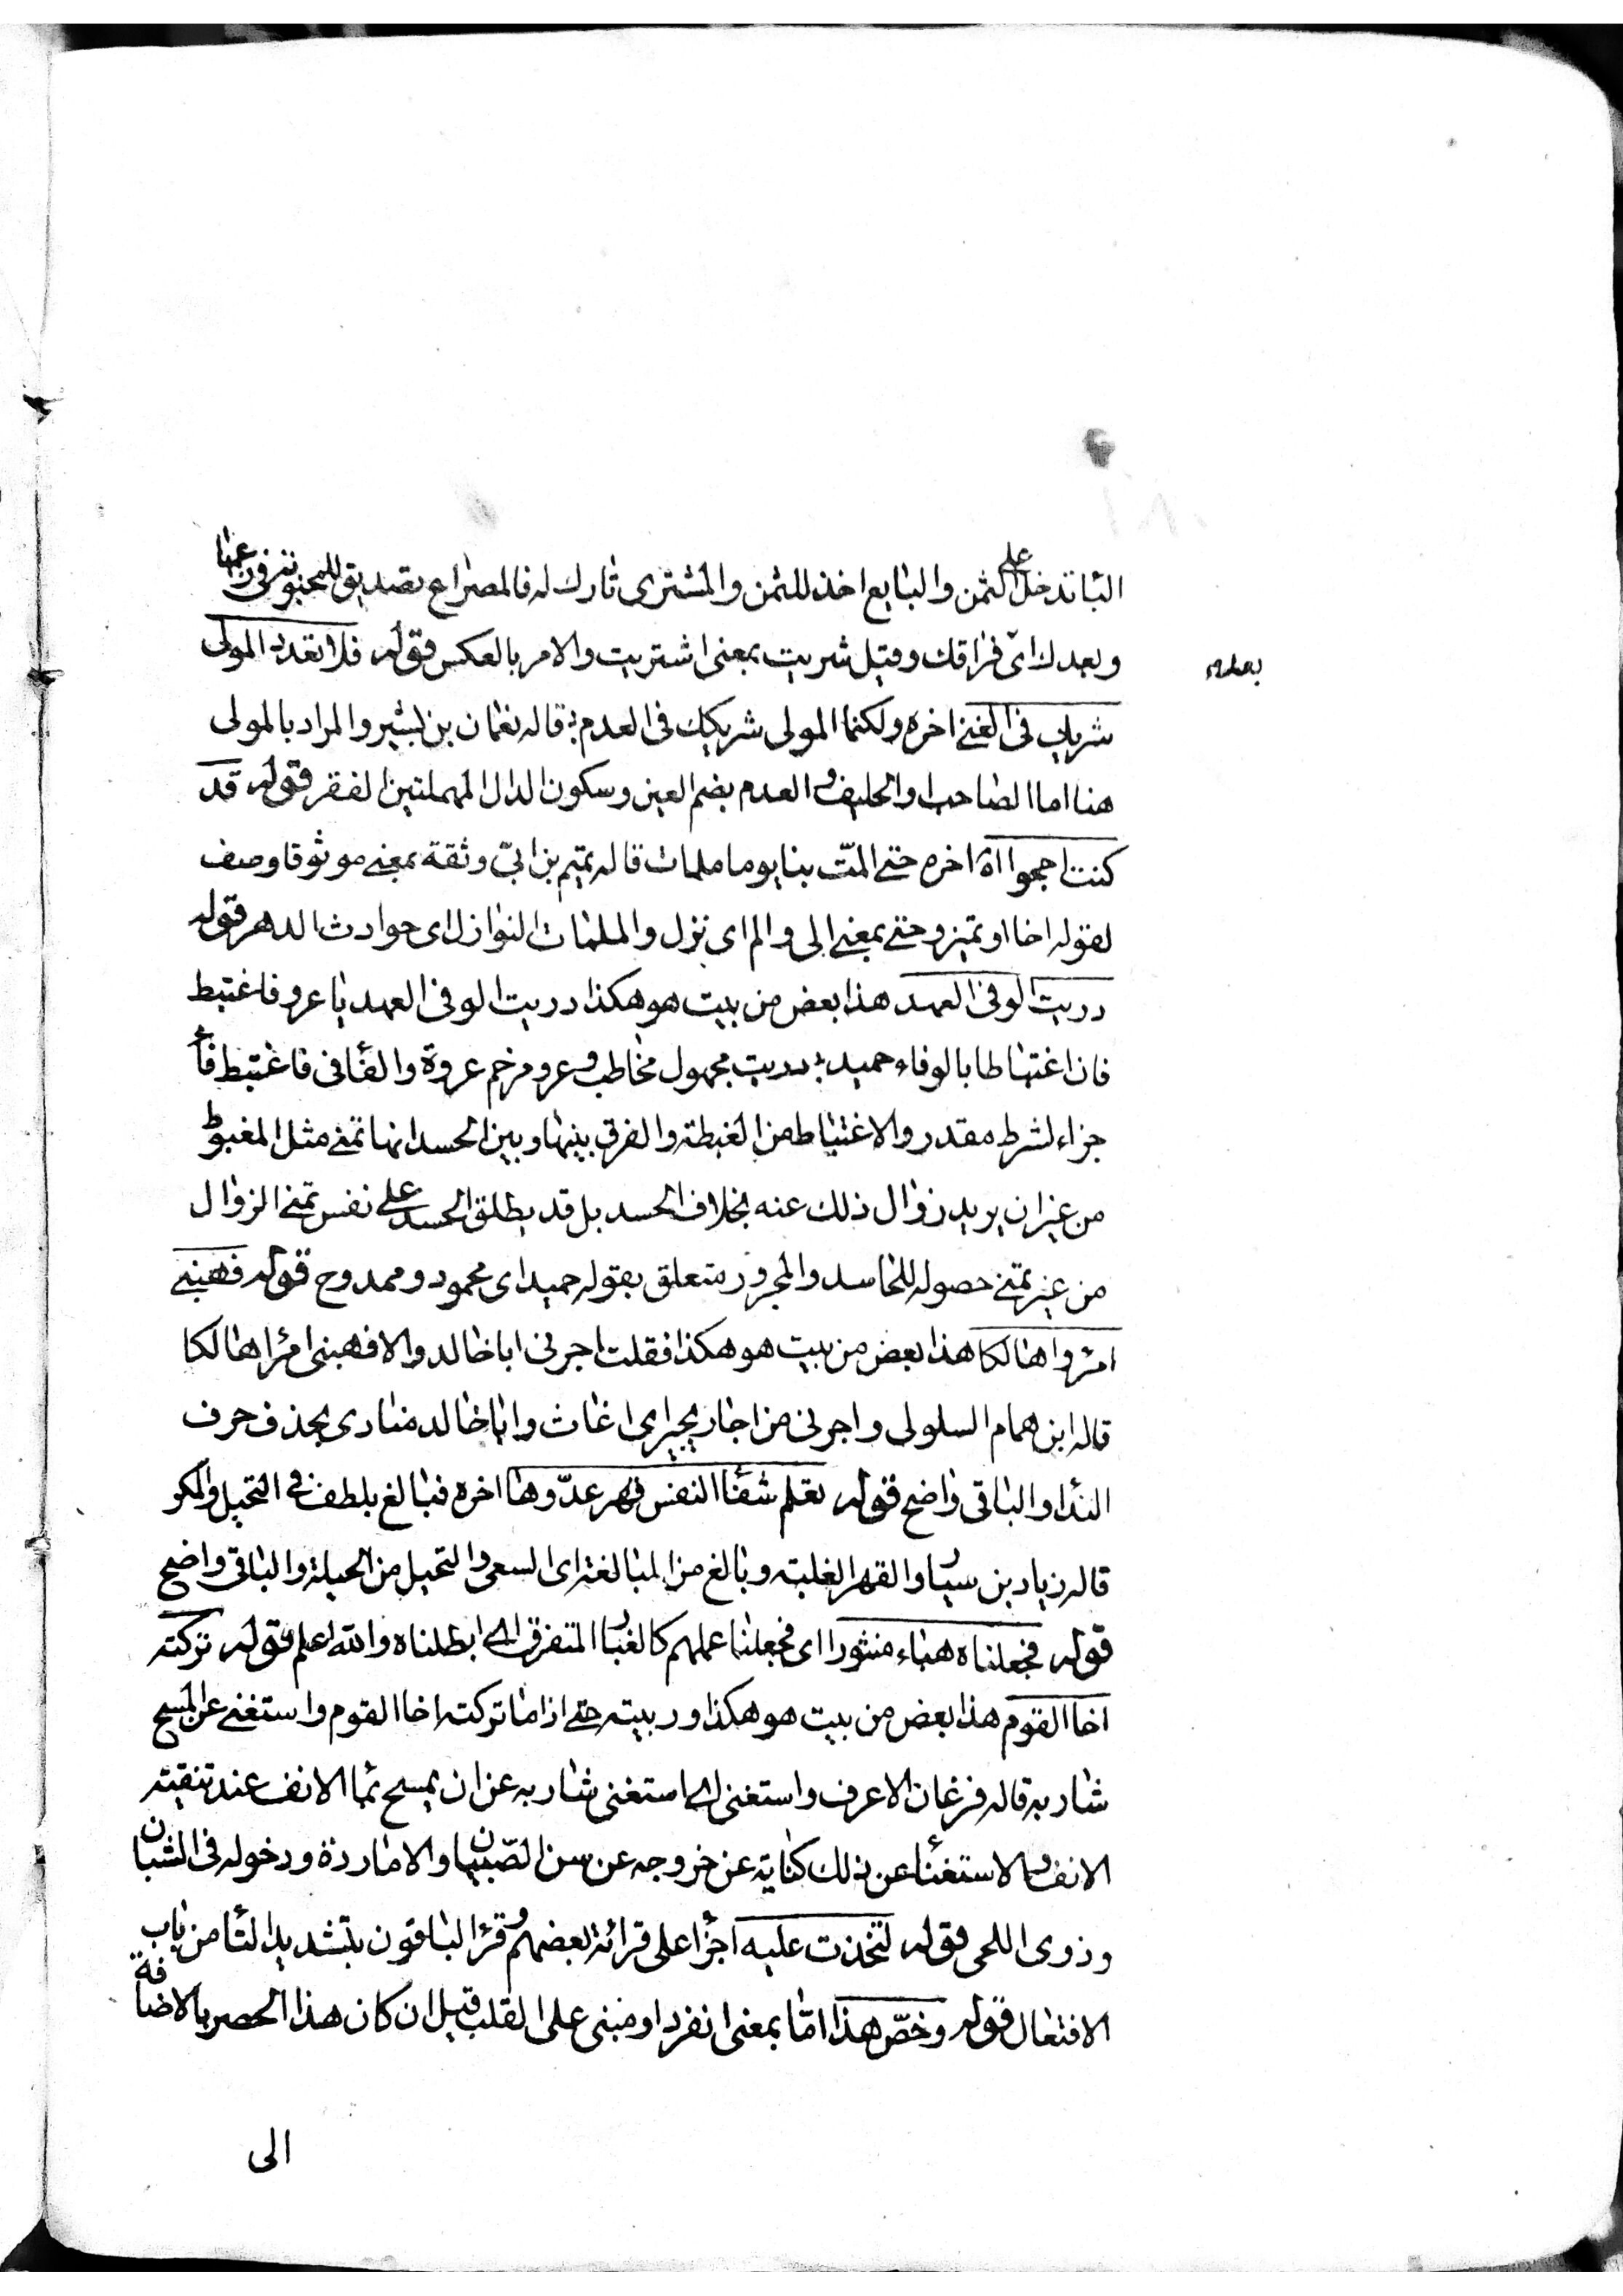 البا تدخل على الثمن والبايع اخذ للثمن والمشترى تارك له فالمصراع تصديق للمحبوبة فى عنها
وبعدك اى فراقك وقيل شريت بمعنى اشتريت والامر بالعكس قوله فلا تعدد المولى
بعدد
شريك فى الغنى اخره ولكنما المولى شريكك فى العدم ؛ قاله نعمان بن بشير والمراد بالمولى
هنا اما الصاحب او الحليف و العدم بضم العين وسكون الدال المهملتين الفقر قوله قد
كنت احجوا اه اخره حتى المّت بنا يوما ملمات قاله تميم بن ابىّ وثقة بمعنى موثوقا وصف
لقوله اخا او تميز وحتى بمعنى الى والم اى نزل والملمات النوازل اى حوادث الدهر قوله
دريت الوفى العهد هذا بعض من بيت هو هكذا دريت الوفى العهد يا عرو فاغتبط
فان اغتباطا بالوفاء حميد ؛ دريت مجهول مخاطب و عرو مرخم عروة والفا فى فاغتبط فا
جزاء لشرط مقدر والاغتباط من الغبطة والفرق بينها وبين الحسد انها تمنى مثل المغبوط
من غير ان يريد زوال ذلك عنه بخلاف الحسد بل قد يطلق الحسد على نفس تمنى الزوال
من غير تمنى حصوله للحاسد والمجرور متعلق بقوله حميد اى محمود وممدوح قوله فهبنى
امرؤا هالكا هذا بعض من بيت هو هكذا فقلت اجرنى ابا خالد والا فهبنى امرا هالكا
قاله ابن همام السلولى واجرنى من اجار يجير اى اغاث وابا خالد منادى بحذف حرف
الندا والباقى واضح قوله تعلم شفا النفس قهر عدّوها اخره فبالغ بلطف فى التحيل والمكر
قاله زياد بن سيار والقهر الغلبة وبالغ من المبالغة اى السعى و التحيل من الحيلة والباقى واضح
قوله فجعلناه هباء منثورا اى فجعلنا عملهم كالغبار المتفرق اى ابطلناه والله اعلم قوله تركته
اخا القوم هذا بعض من بيت هو هكذا وربيته حتى اذا ما تركته اخا القوم واستغنى عن المسح
شاربه قاله فرغان الاعرف واستغنى اى استغنى شاربه عن ان يمسح بما الانف عند تنقية
الانف و الاستغنا عن ذلك كناية عن خروجه عن سن الصّبيان والاماردة ودخوله فى الشبان
وذوى اللحى قوله لتخذت عليه اجرا على قرائة بعضهم و قرا الباقون بتشديد التا من باب
الافتعال قوله وخصّ هذا امّا بمعنى انفرد او مبنى على القلب قيل ان كان هذا الحصر بالاضافة
الى